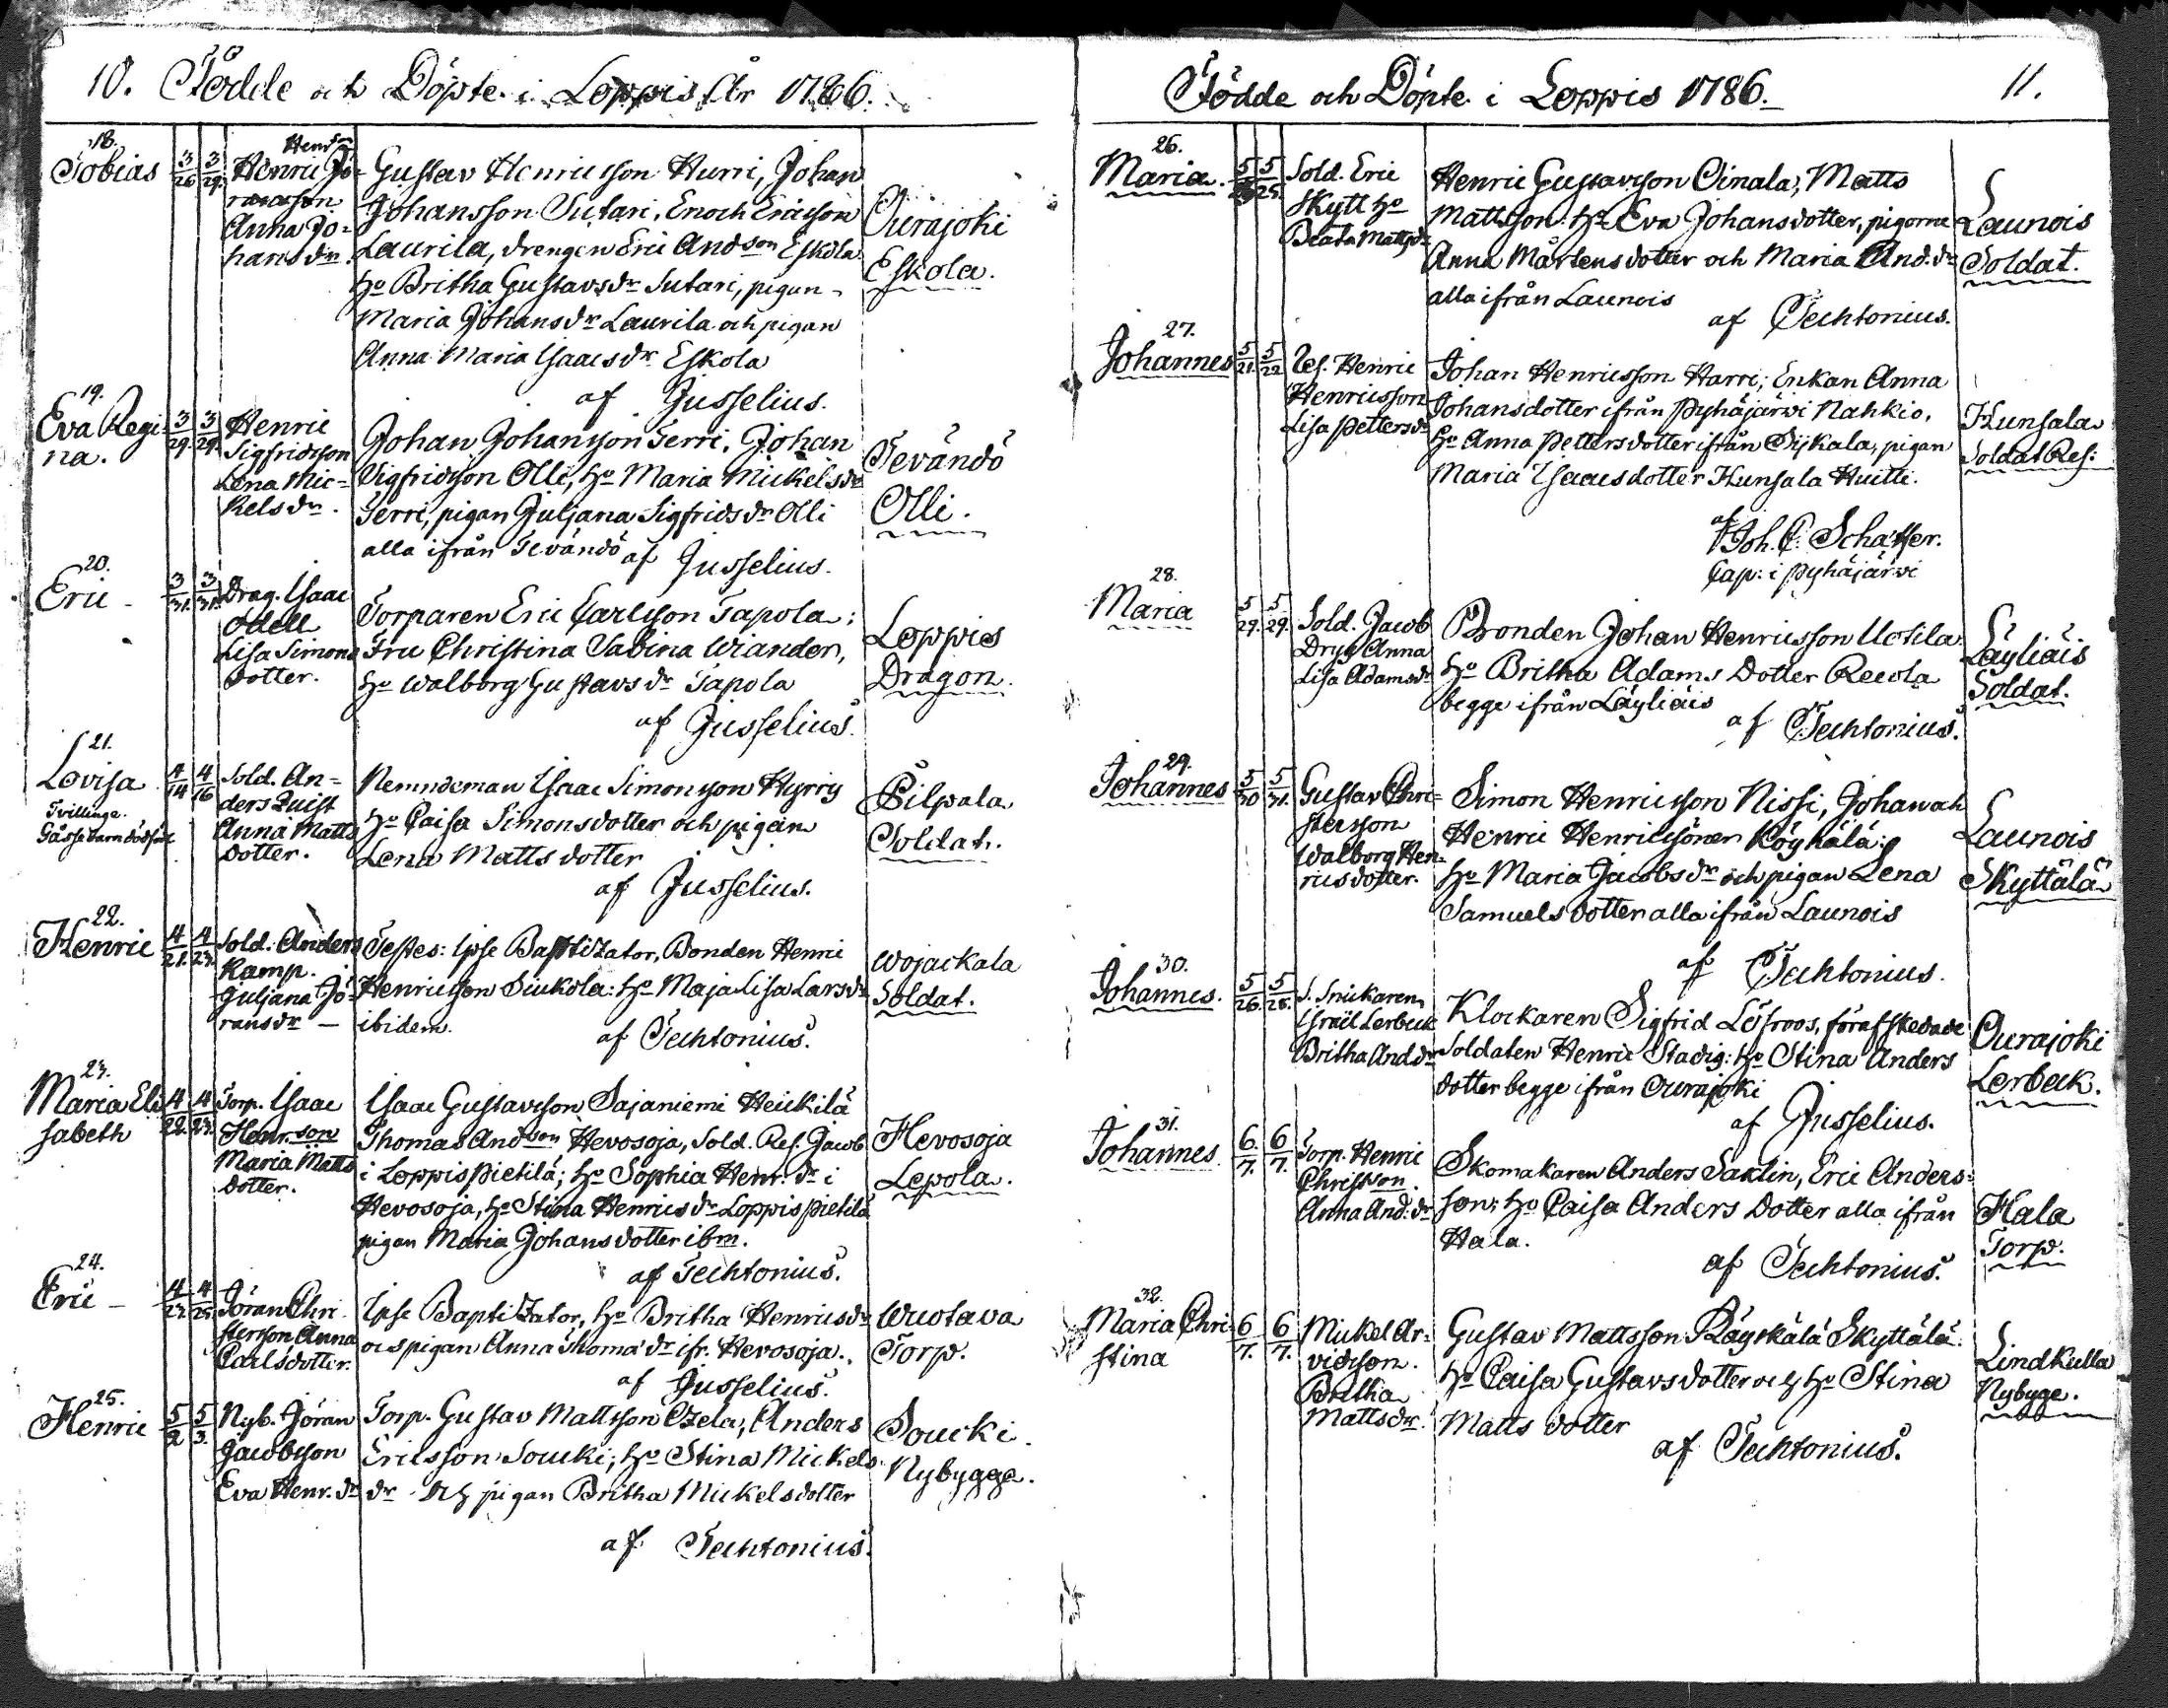 10. Födde och Döpte i Loppis År 1786.
18.
Tobias 3/26 3/29.
Henric Jö-
ransson
Anna Jo-
hans dr.
Gustav Henricsson Hurri, Johan
Johansson Sutari, Enoch Ericsson
Laurila, drengen Eric Andson Eskola
ho Britha Gustavsdr Sutari, pigan
Maria Johans dr Laurila och pigan
Anna Maria Isaacs dr Eskola
af Jusselius.
Ourajoki
Eskola.
19.
Eva Regi-
na.
3/29. 3/29.
Henric
Sigfridsson
Lena Mic-
kels dr.
Johan Johansson Serri, Johan
Sigfridsson Olli, ho Maria Mickels dr
Serri, pigan Juljana Sigfrids dr Olli
alla ifrån Tevändö af Jusselius.
Tevändö
Olli.
20.
Eric 3/31. 3/31.
Drag. Isaac
Odell
Lisa Simons
dotter.
Torparen Eric Carlsson Tapola;
Fru Christina Sabina Wiander,
ho Walborg Gustavs dr Tapola
af Jusselius.
Loppis
Dragon.
21.
Lovisa 4/14 4/16
Tvillinge.
Sold. An-
ders Quist
Anna Matts
dotter.
Nemndeman Isaac Simonsson Hyrry
ho Caisa Simonsdotter och pigan
Lena Matts dotter
af Jusselius.
Pilpala
Soldat.
22.
Henric 4/21. 4/23.
Sold. Anders
Kamp.
Juljana Jö-
rans dr —
Testes: Ipse Baptizator, Bonden Henric
Henricsson Siukola: ho Maja Lisa Lars dr
ibidem.
af Techtonius.
Wojackala
Soldat.
23.
Maria Eli
sabeth
4/22. 4/23.
Torp. Isaac
Henr.son
Maria Matts
dotter.
Isaac Gustavsson Sajaniemi Heickilä
Thomas Andson Hevosoja, Sold. Ref. Jacob
i Loppis Pietilä; ho Sophia Henr. dr i
Hevosoja, ho Stina Henrics dr Loppis Pietilä
pigan Maria Johans dotter ibm.
af Techtonius.
Hevosoja
Lepola.
24.
Eric — 4/23. 4/25.
Jöran Chri-
stersson Anna
Carls dotter.
Ipse Baptizator, ho Britha Henrics dr
och pigan Anna Thomas dr ifr. Hevosoja.
af Jusselius.
Wuotava
Torp.
25.
Henric 5/2 5/3.
Nyb. Jöran
Jacobsson
Eva Henr. dr
Torp. Gustav Mattsson Ozela, Anders
Ericsson Soucki; ho Stina Mickels
dr och pigan Britha Mickelsdotter
af Techtonius.
Soucki.
Nybygge.
Födde och Döpte i Loppis 1786. 11.
26.
Maria.
5/25.
Sold. Eric
Skytt ho
Beata Mattsdr
Henric Gustavsson Oinala, Matts
Mattsson: ho Eva Johansdotter, pigorna
Anna Mårtens dotter och Maria And. dr
alla ifrån Launois
af Techtonius.
Launois
Soldat.
27.
Johannes 5/21. 5/22
Ref. Henric
Henricsson
Lisa Pettersdr
Johan Henricsson Harri; Enkan Anna
Johansdotter ifrån Pyhäjärvi Nahkio,
ho Anna Pettersdotter ifrån Sijkala, pigan
Maria Isaacsdotter Hunsala Huitti.
af Joh. C. Schæffer.
Cap: i Pyhäjärvi
Hunsala
Soldat Ref:
28.
Maria 5/29. 5/29.
Sold. Jacob
Dryg Anna
Lisa Adams dr
Bonden Johan Henricsson Uotila
ho Britha Adams Dotter Recola
begge ifrån Läyliäis
af Techtonius.
Läyliäis
Soldat.
29.
Johannes 5/30 5/31.
Gustav Chri-
stersson
Walborg Hen-
rics dotter.
Simon Henricsson Nissi, Johan och
Henric Henricssöner Köyhälä:
ho Maria Jacobs dr och pigan Lena
Samuels dotter alla ifrån Launois
af Techtonius.
Launois
Skyttälä
30.
Johannes. 5/26. 5/28.
S. Snickaren
Israel Lerbeck
Britha And dr
Klockaren Sigfrid Löfroos, förafskedade
Soldaten Henric Stadig: ho Stina Anders
dotter begge ifrån Ourajoki
af Jusselius.
Ourajoki
Lerbeck.
31.
Johannes. 6/7. 6/7.
Torp. Henric
Christson.
Anna And: dr
Skomakaren Anders Saxlin, Eric Anders-
son; ho Caisa Anders Dotter alla ifrån
Hala.
af Techtonius.
Hala
Torp.
32.
Maria Chri
stina
6/7. 6/7.
Mickel Ar-
vidsson.
Britha
Matts dr.
Gustav Mattsson Räyskälä Skyttälä:
ho Caisa Gustavs dotter och ho Stina
Matts dotter
af Techtonius.
Lindkulla
Nybygge.